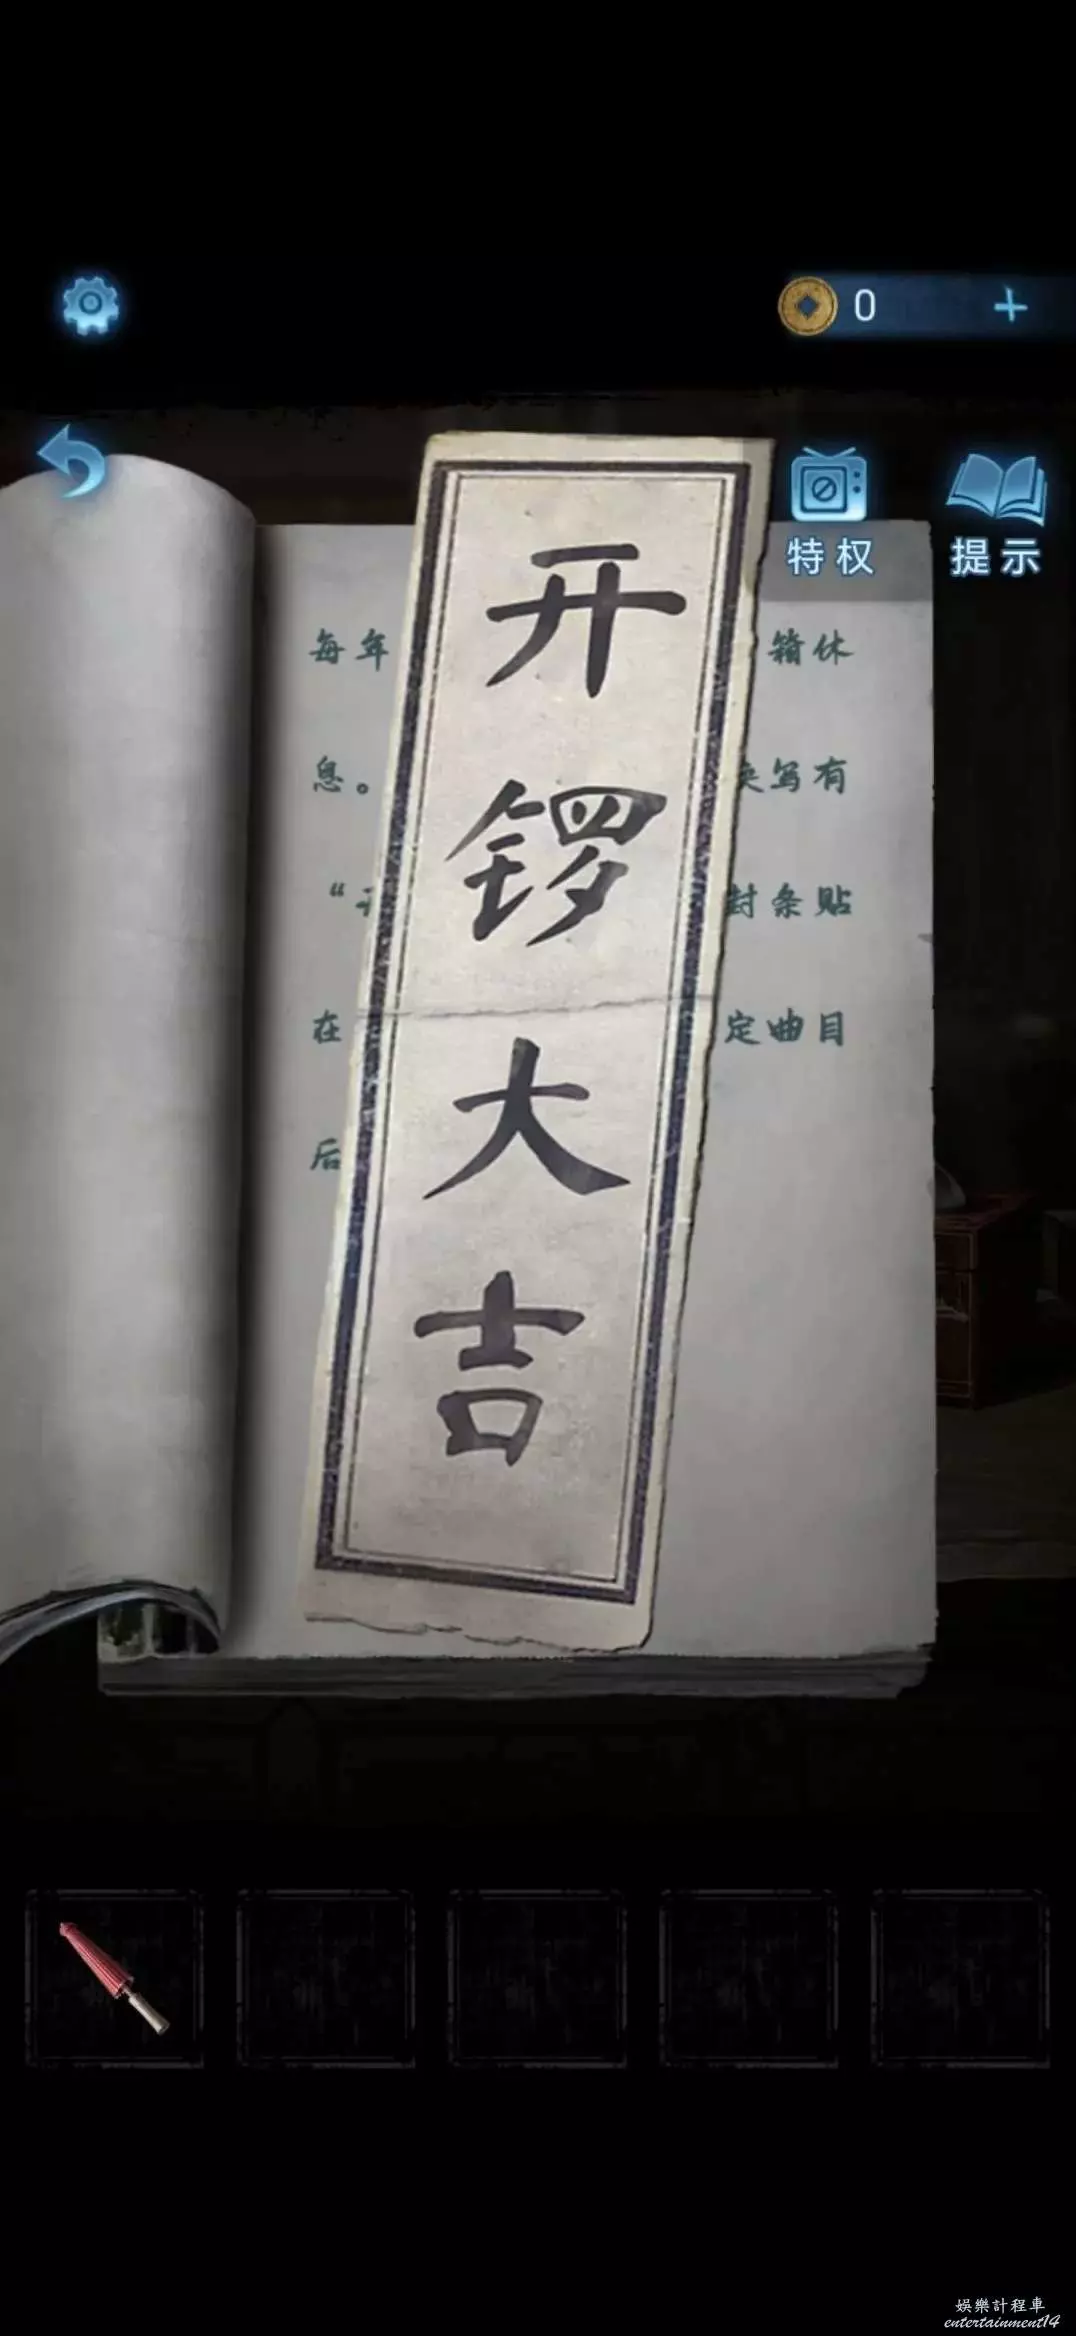 0
特权
提示
开锣大吉
每年 箱休
息。 写有
“ 封条贴
在 定曲目
后
娛樂計程車
entertainment14